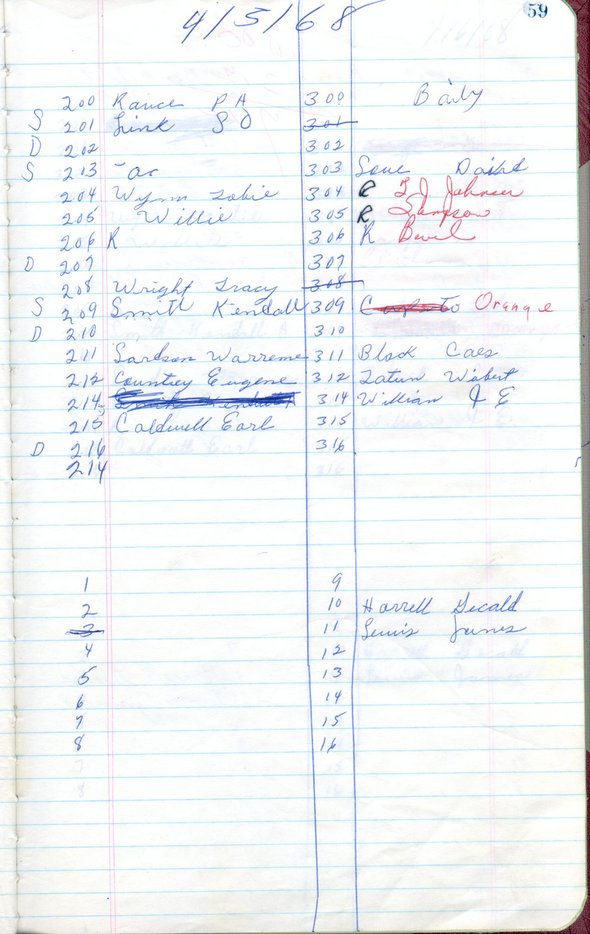 59
4/5/68
200 Rance PA 300 Baily
S 201 Link SO 301
D 202 302
S 213 -ac 303 Daisd
204 Wynn 304 R T J Johnson
205 Willie 305 R Sampson
206 R 306 R Bevel
D 207 307
208 Wright Tracy 308
S 209 Smith Kendall 309 To Orange
D 210 310
211 Warreme 311 Block Caes
212 Countey Eugene 312 Tatun
214 314 Willian J E
215 Caldwell Earl 315
D 216 316
214
1 9
2 10 Harrell Gecald
3 11 Lewis James
4 12
5 13
6 14
7 15
8 16